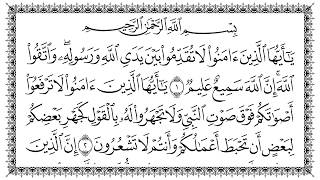 بِسْمِ ٱللَّهِ ٱلرَّحْمَٰنِ ٱلرَّحِيمِ
يَٰٓأَيُّهَا ٱلَّذِينَ ءَامَنُوا۟ لَا تُقَدِّمُوا۟ بَيْنَ يَدَىِ ٱللَّهِ وَرَسُولِهِۦ وَٱتَّقُوا۟
ٱللَّهَ إِنَّ ٱللَّهَ سَمِيعٌ عَلِيمٌ ١ يَٰٓأَيُّهَا ٱلَّذِينَ ءَامَنُوا۟ لَا تَرْفَعُوٓا۟
أَصْوَٰتَكُمْ فَوْقَ صَوْتِ ٱلنَّبِىِّ وَلَا تَجْهَرُوا۟ لَهُۥ بِٱلْقَوْلِ كَجَهْرِ بَعْضِكُمْ
لِبَعْضٍ أَن تَحْبَطَ أَعْمَٰلُكُمْ وَأَنتُمْ لَا تَشْعُرُونَ ٢ إِنَّ ٱلَّذِينَ